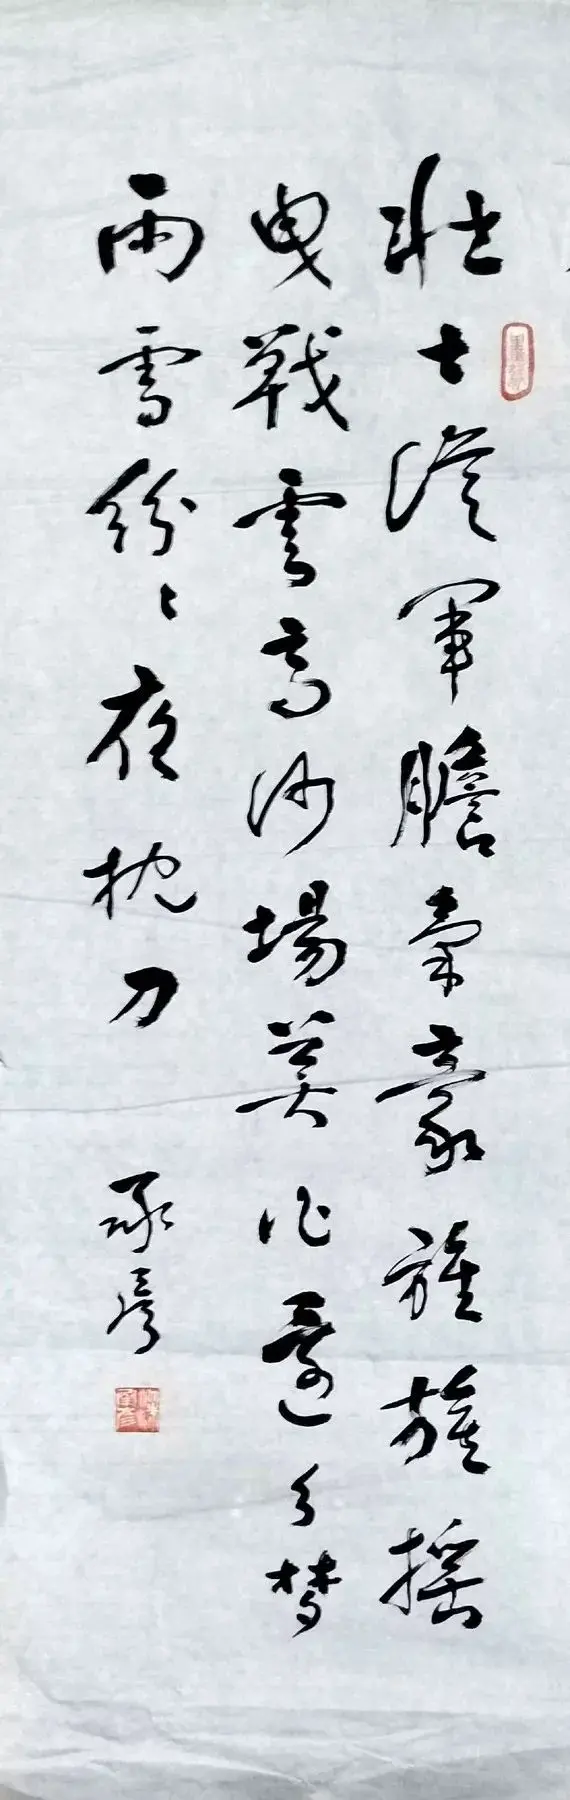 壯士從軍膽氣豪旌旗搖
曳戰雲高沙場莫作還鄉夢
雨雪紛〻夜枕刀
承